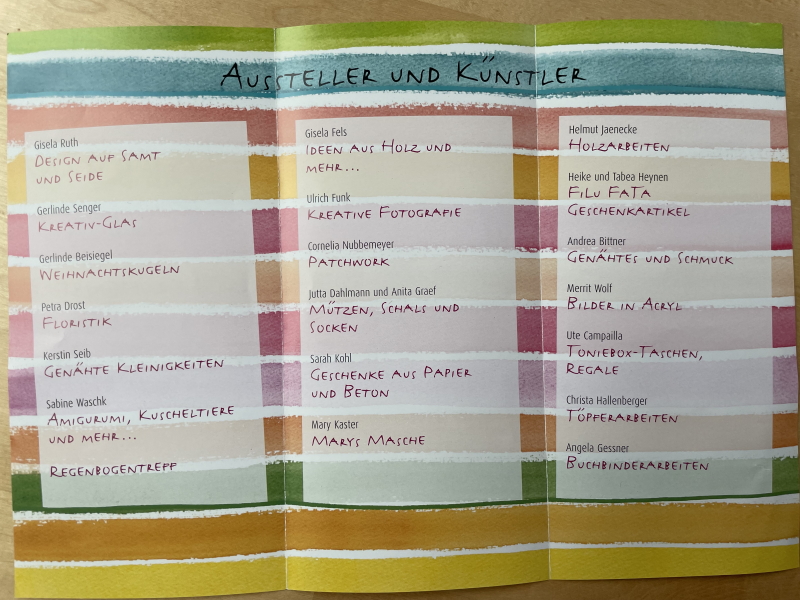 Aussteller und Künstler
Gisela Ruth
Design auf Samt
und Seide
Gerlinde Senger
Kreativ-Glas
Gerlinde Beisiegel
Weihnachtskugeln
Petra Drost
Floristik
Kerstin Seib
Genähte Kleinigkeiten
Sabine Waschk
Amigurumi, Kuscheltiere
und mehr...
Regenbogentreff
Gisela Fels
Ideen aus Holz und
mehr...
Ulrich Funk
Kreative Fotografie
Cornelia Nubbemeyer
Patchwork
Jutta Dahlmann und Anita Graef
Mützen, Schals und
Socken
Sarah Kohl
Geschenke aus Papier
und Beton
Mary Kaster
Marys Masche
Helmut Jaenecke
Holzarbeiten
Heike und Tabea Heynen
FiLu FaTa
Geschenkartikel
Andrea Bittner
Genähtes und Schmuck
Merrit Wolf
Bilder in Acryl
Ute Campailla
Toniebox-Taschen,
Regale
Christa Hallenberger
Töpferarbeiten
Angela Gessner
Buchbinderarbeiten